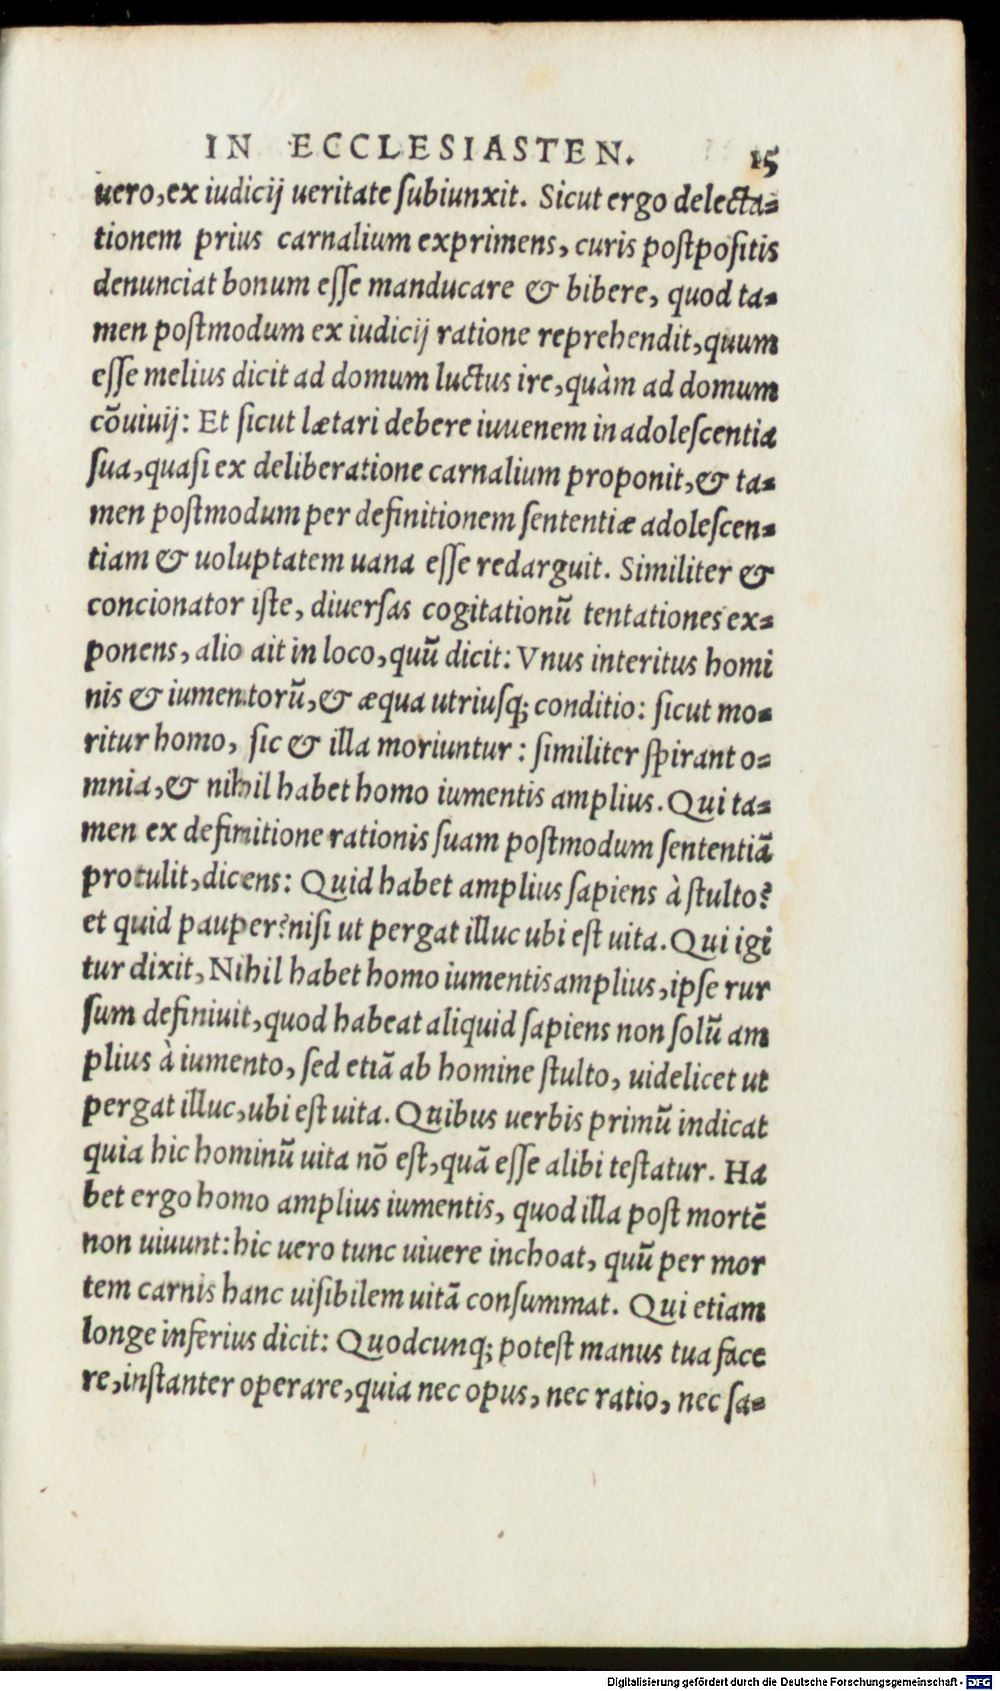 IN ECCLESIASTEN. 15
uero, ex iudicij ueritate ſubiunxit. Sicut ergo delecta-
tionem prius carnalium exprimens, curis poſtpoſitis
denunciat bonum eſſe manducare & bibere, quod ta-
men poſtmodum ex iudicij ratione reprehendit, quum
eſſe melius dicit ad domum luctus ire, quàm ad domum
cōuiuij: Et ſicut lætari debere iuuenem in adoleſcentia
ſua, quaſi ex deliberatione carnalium proponit, & ta-
men poſtmodum per definitionem ſententiæ adoleſcen-
tiam & uoluptatem uana eſſe redarguit. Similiter &
concionator iſte, diuerſas cogitationū tentationes ex-
ponens, alio ait in loco, quū dicit: Vnus interitus homi
nis & iumentorū, & æqua utriuſq; conditio: ſicut mo-
ritur homo, ſic & illa moriuntur: ſimiliter ſpirant o-
mnia, & nihil habet homo iumentis amplius. Qui ta-
men ex definitione rationis ſuam poſtmodum ſententiā
protulit, dicens: Quid habet amplius ſapiens à ſtulto?
et quid pauper? niſi ut pergat illuc ubi eſt uita. Qui igi
tur dixit, Nihil habet homo iumentis amplius, ipſe rur
ſum definiuit, quod habeat aliquid ſapiens non ſolū am
plius à iumento, ſed etiā ab homine ſtulto, uidelicet ut
pergat illuc, ubi eſt uita. Quibus uerbis primū indicat
quia hic hominū uita nō eſt, quā eſſe alibi teſtatur. Ha
bet ergo homo amplius iumentis, quod illa poſt mortē
non uiuunt: hic uero tunc uiuere inchoat, quū per mor
tem carnis hanc uiſibilem uitā conſummat. Qui etiam
longe inferius dicit: Quodcunq; poteſt manus tua face
re, inſtanter operare, quia nec opus, nec ratio, nec ſa-
Digitalisierung gefördert durch die Deutsche Forschungsgemeinschaft - DFG